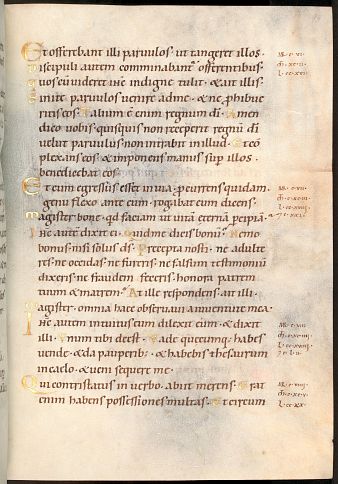 Et offerebant illi parvulos ut tangeret illos·
iscipuli autem comminabant offerentibus·
uos cu uideret ihc indigne tulit· & ait illis·
inite paruulos uenire ad me· & ne phibue
ritis eos· Talium e enim regnum di· Amen
dico uobis quisquis non receperit regnu di
uelut paruulus non intrabit in illud· Et co
plexans eos & imponens manus sup illos·
benedicebat eos·
Et cum egressus esset in uia· pcurrens quidam·
genu flexo ante eum· rogabat eum dicens·
agister bone· qd faciam ut uita eterna pcipia·
ihc aute dixit ei· Quid me dicis bonu· Nemo
bonus· nisi solus ds· Precepta nosti· ne adulte
res· ne occidas· ne fureris· ne falsum testimoniu
dixeris· ne fraudem feceris· honora patrem
tuum & matrem· At ille respondens ait illi·
agister· omnia haec obseruaui a iuuentute mea·
ihc autem intuitus eum dilexit eum· & dixit
illi· Unum tibi deest· Uade quecumq; habes
uende· & da pauperib; & habebis thesaurum
in caelo· & ueni sequere me·
Qui contristatus in uerbo· abiit merens· Erat
enim habens possessiones multas· Et circum